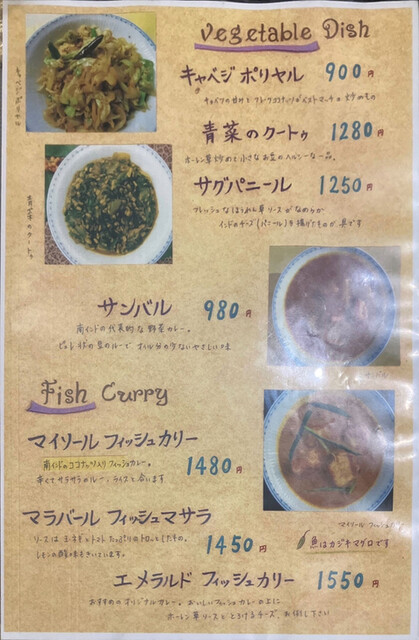 Vegetable Dish
キャベジポリヤル
キャベジ ポリヤル 900円
キャベツの甘味とフレッシュココナッツがベストマッチの炒めもの
青菜のクートゥ 1280円
ホーレン草炒めと小さなお豆のヘルシーな一品。
青菜のクートゥ
サグパニール 1250円
フレッシュなほうれん草ソースがなめらか
インドのチーズ(パニール)を揚げたものが具です
サンバル 980円
南インドの代表的な野菜カレー。
ピュレ状の豆のルーで オイル分の少ないやさしい味
サンバル
Fish Curry
マイソール フィッシュカリー
南インドのココナッツ入りフィッシュカレー。
辛くてサラサラのルー。ライスと合います
1480円
マイソール フィッシュ
魚はカジキマグロです
マラバール フィッシュマサラ
ソースは玉ネギとトマトたっぷりのトロッとしたもの。
レモンの酸味をきいています。
1450円
エメラルド フィッシュカリー 1550円
おすすめのオリジナルカレー。おいしいフィッシュカレーの上に
ホーレン草ソースととろけるチーズ お試し下さい